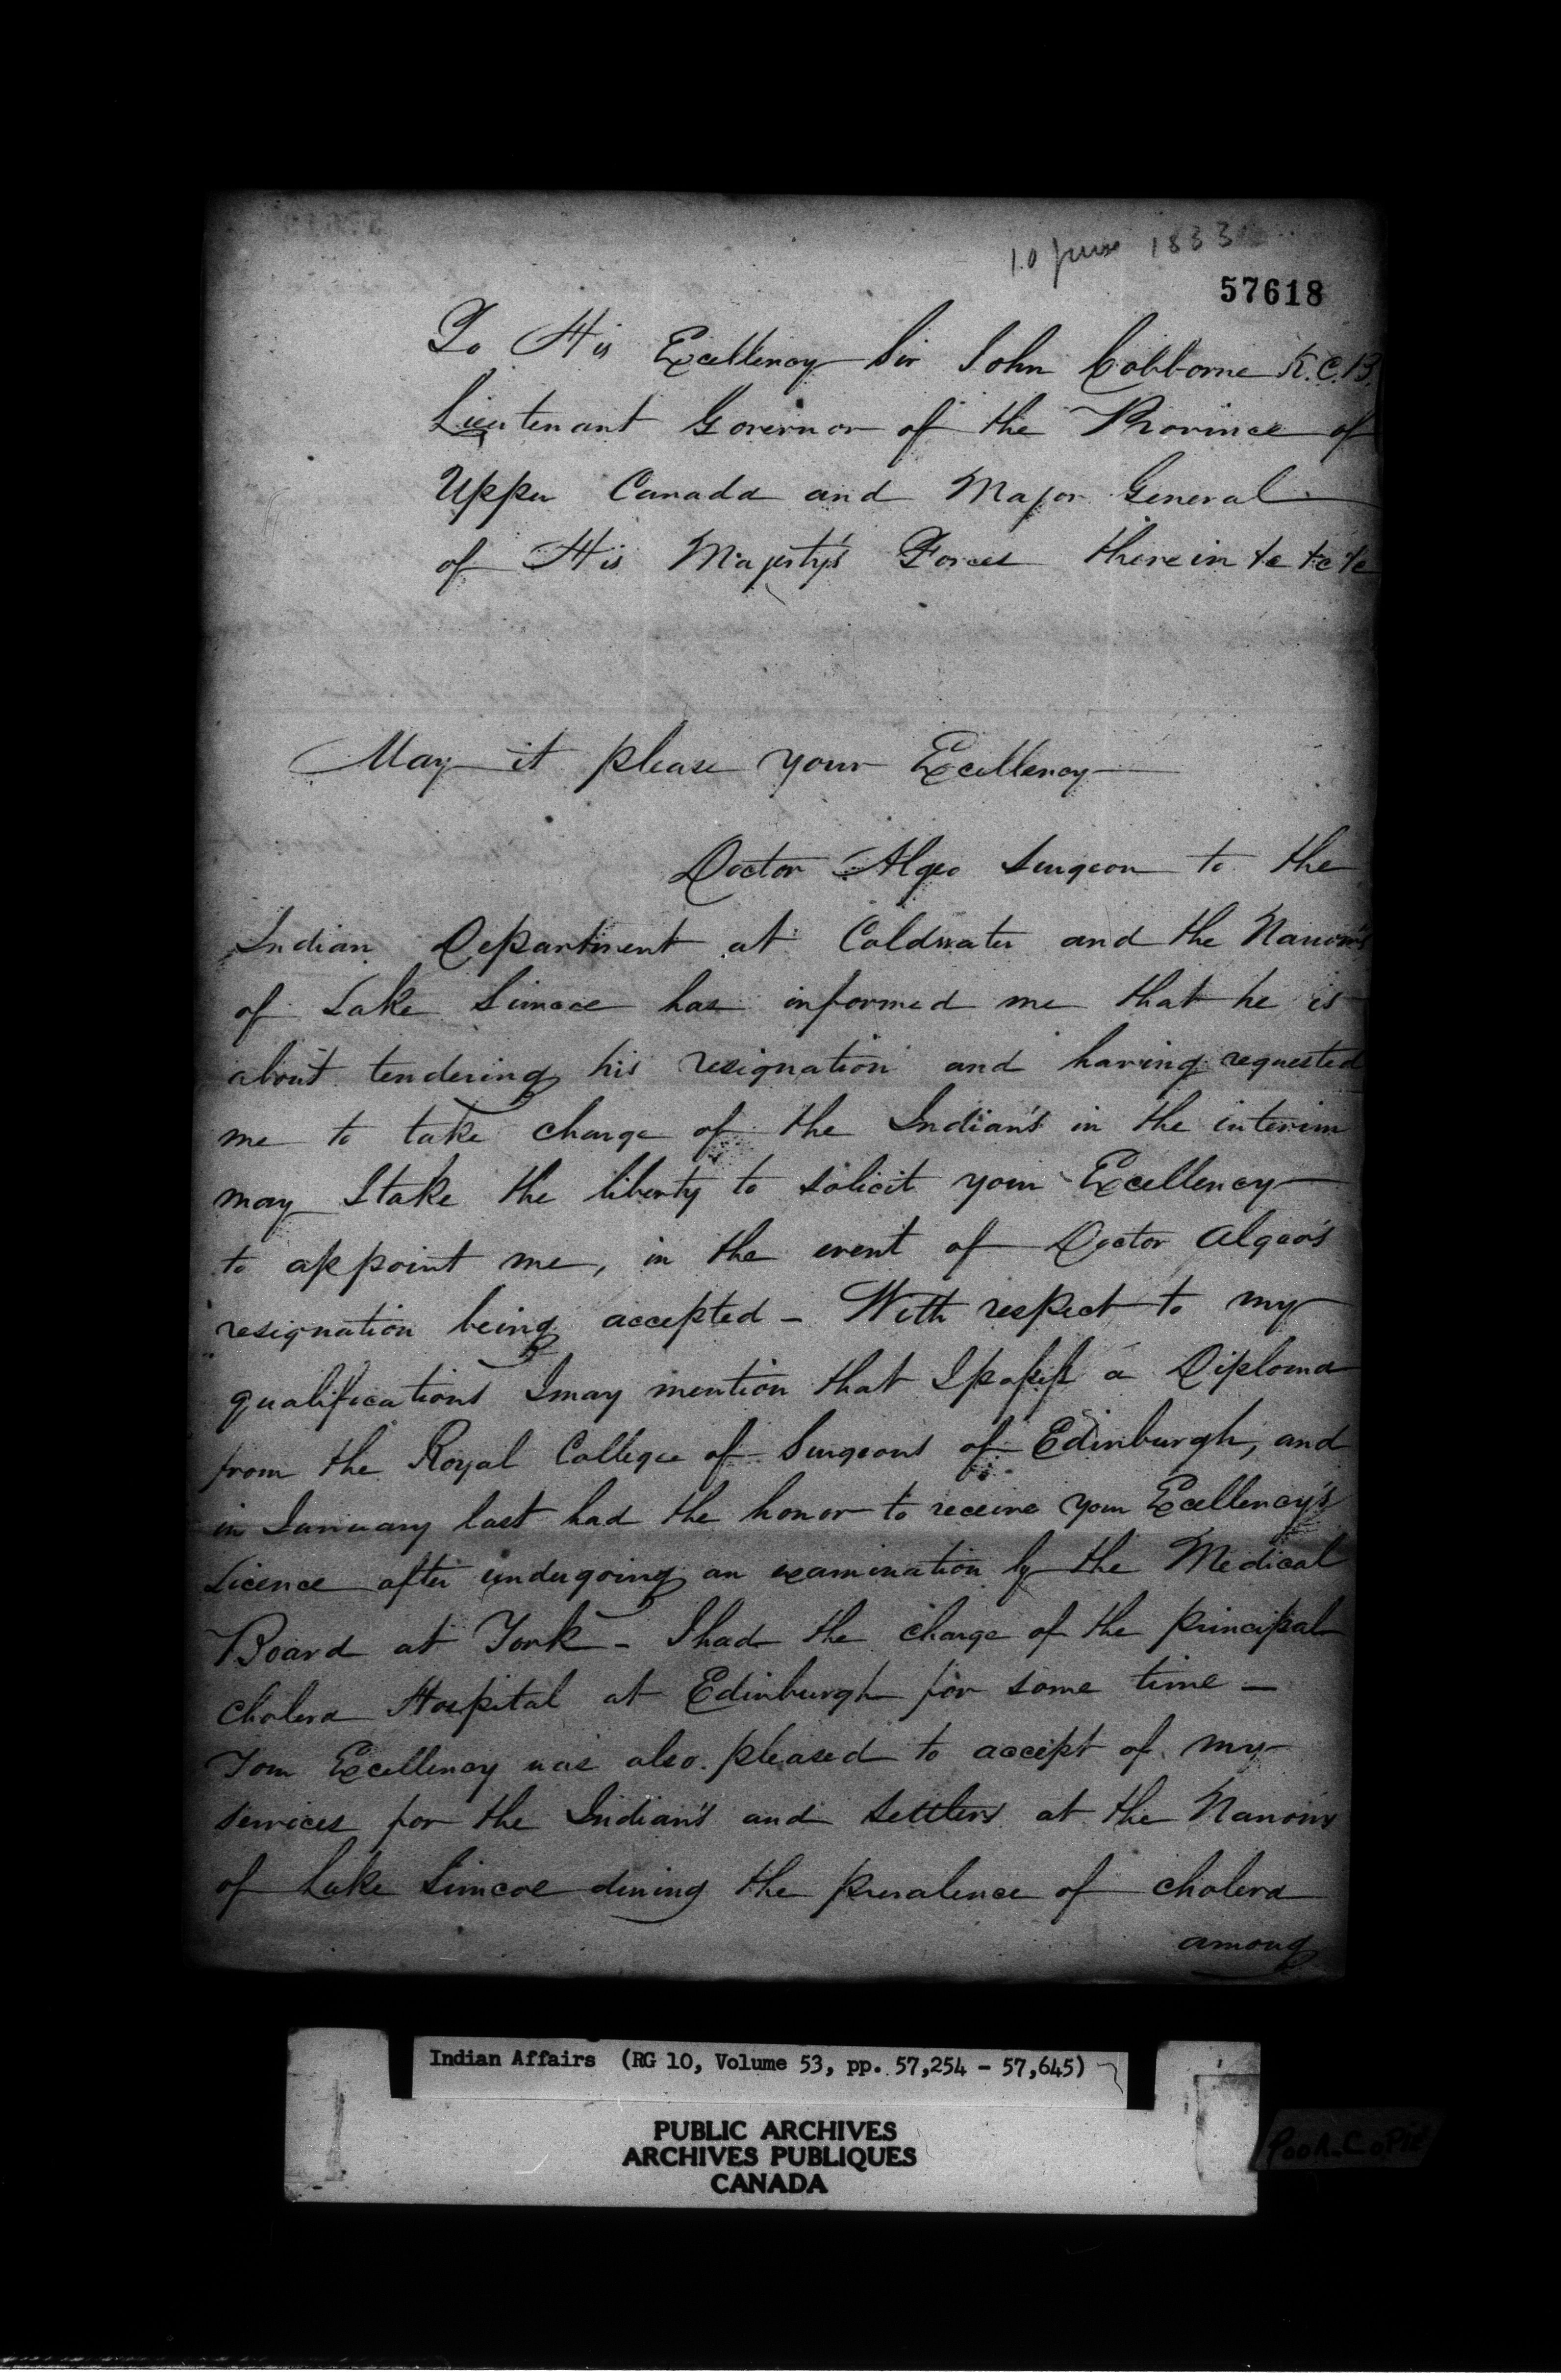 10 June 1833
57618
To His Excellency Sir John Colborne K.C.B.
Lieutenant Governor of the Province of
Upper Canada and Major General
of His Majesty's Forces therein &c &c &c
May it please your Excellency
Doctor Algeo Surgeon to the
Indian Department at Coldwater and the Narrow's
of Lake Simcoe has informed me that he is
about tendering his resignation and having requested
me to take charge of the Indian's in the interim
may I take the liberty to solicit your Excellency
to appoint me, in the event of Doctor Algeo's
resignation being accepted - With respect to my
qualifications I may mention that I possess a Diploma
from the Royal College of Surgeons of Edinburgh, and
in January last had the honor to receive your Excellency's
Licence after undergoing an examination by the Medical
Board at York - I had the charge of the principal
cholera Hospital at Edinburgh for some time -
Your Excellency was also pleased to accept of my
services for the Indian's and settlers at the Narrows
of Lake Simcoe during the prevalence of cholera
among
Indian Affairs (RG 10, Volume 53, pp. 57,254 - 57,645)
PUBLIC ARCHIVES
ARCHIVES PUBLIQUES
CANADA
POOR COPIE